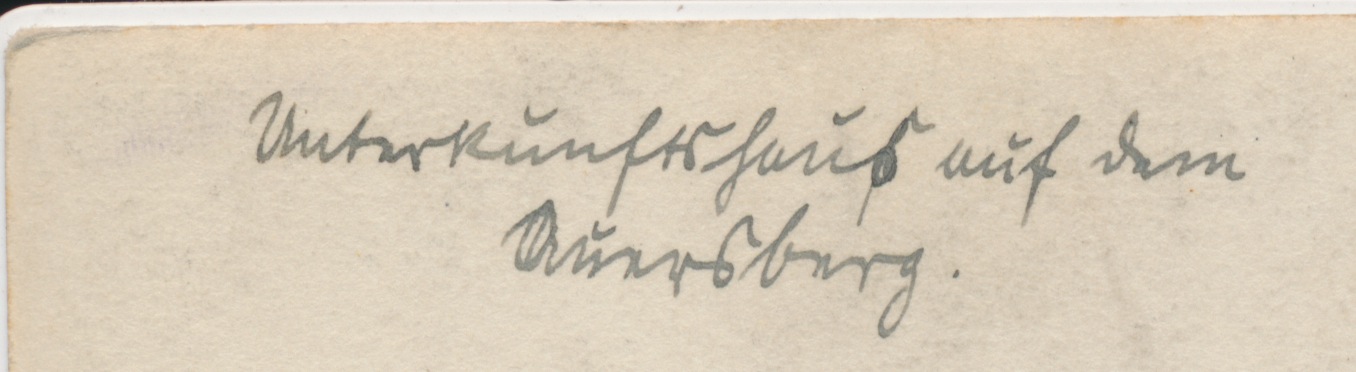 Unterkunftshaus auf dem
Auersberg.